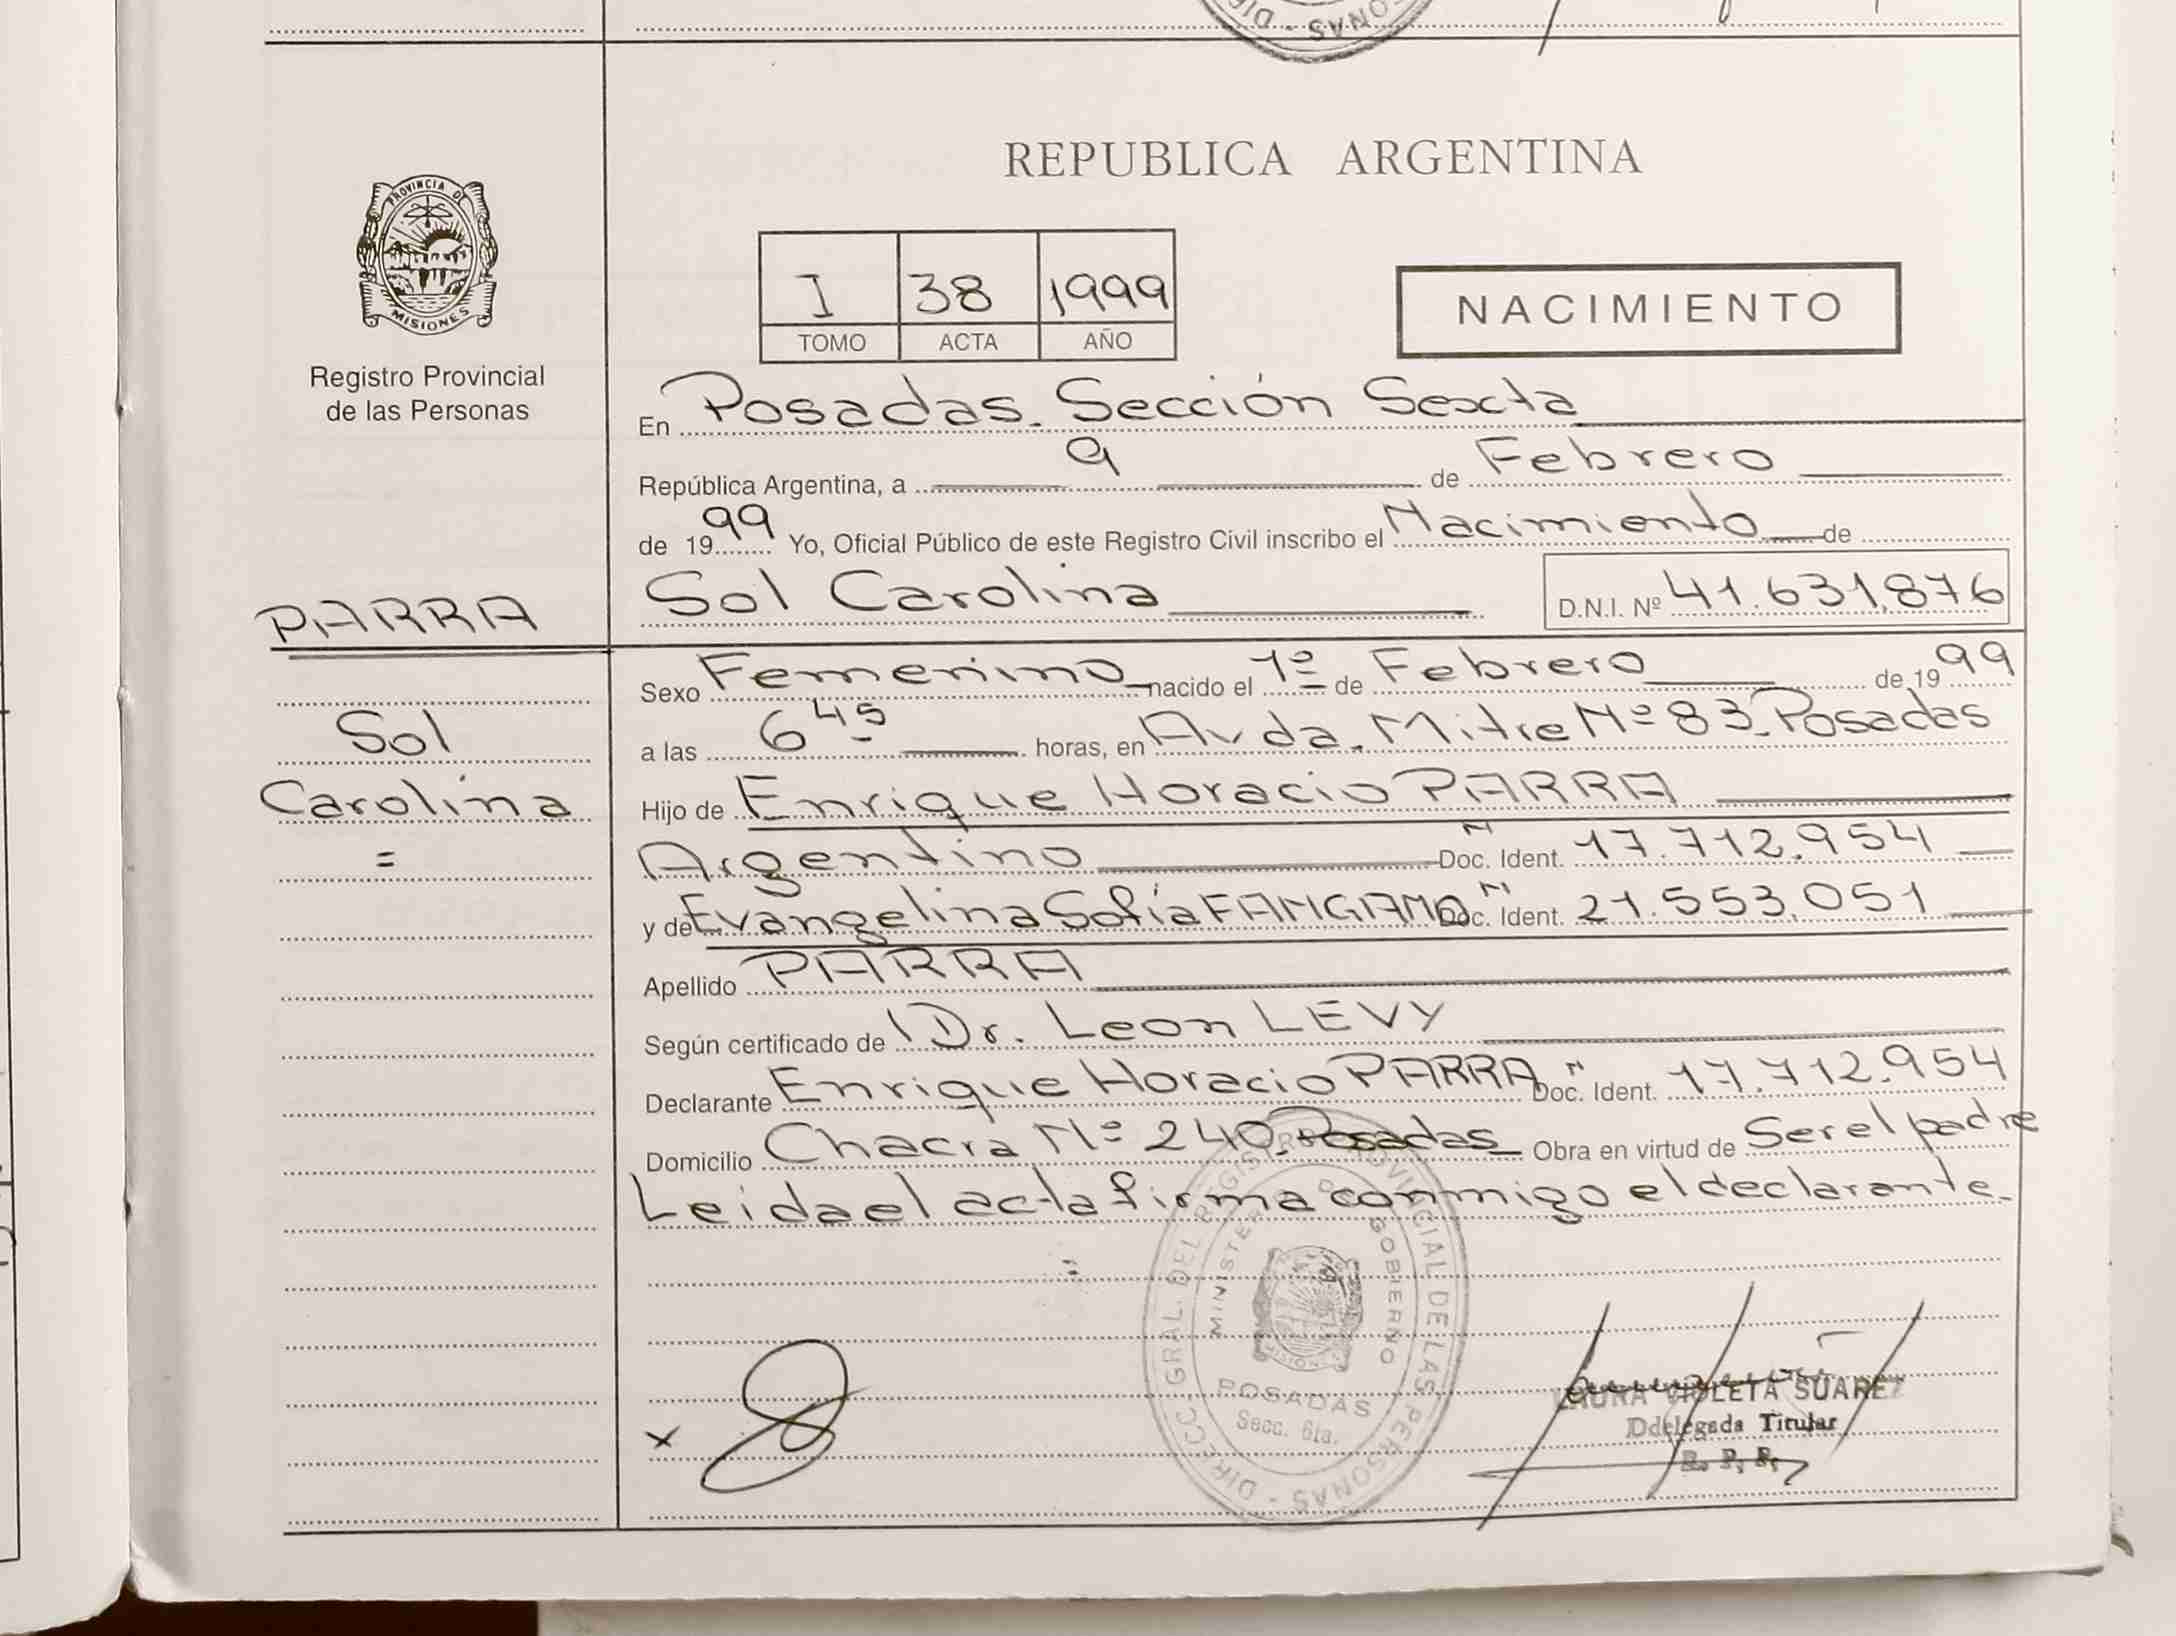 REPUBLICA ARGENTINA
PROVINCIA DE
MISIONES
Registro Provincial
de las Personas
I 38 1999
TOMO ACTA AÑO
NACIMIENTO
En Posadas. Sección Sexta
República Argentina, a 9 de Febrero
de 1999 Yo, Oficial Público de este Registro Civil inscribo el Nacimiento de
PARRA Sol Carolina D.N.I. Nº 41.631.876
Sexo Femenino nacido el 1º de Febrero de 1999
Sol a las 6 45 horas, en Avda. Mitre Nº 83. Posadas
Carolina Hijo de Enrique Horacio PARRA
= Argentino Doc. Ident. N 17.712.954
y de Evangelina Sofía FANGANO Doc. Ident. N 21.553.051
Apellido PARRA
Según certificado de Dr. Leon LEVY
Declarante Enrique Horacio PARRA Doc. Ident. N 17.712.954
Domicilio Chacra Nº 240. Posadas Obra en virtud de Ser el padre
Leida el acta firma conmigo el declarante.
=
DIRECC. GRAL. DEL REGISTRO PROVINCIAL DE LAS PERSONAS
MINISTERIO DE GOBIERNO
MISIONES
POSADAS
Secc. 6ta.
x
LAURA VIOLETA SUAREZ
Ddelegada Titular
R. P. P.